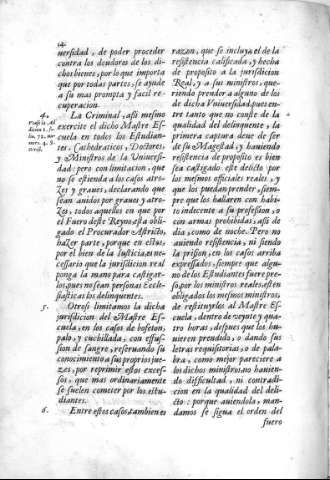 14
uersidad, de poder proceder
contra los deudores de los di-
chos bienes, por lo que importa
que por todas partes, se ayude
a su mas prompta y facil re-
cuperacion.
4.
La Criminal, assi mesmo
exercite el dicho Maestre Es-
cuela en todos los Estudian-
tes, Cathedraticos, Doctores,
y Ministros de la Vniversi-
dad: pero con limitacion, que
no se estienda a los casos atro-
zes y graues, declarando que
sean auidos por graues y atro-
zes, todos aquellos en que por
el Fuero deste Reyno està obli-
gado el Procurador Astricto,
hazer parte, porque en estos,
por el bien de la Iusticia, es ne-
cessario que la jurisdicion real
ponga la mano para castigar-
los, pues no sean personas Eccle-
siasticas los delinquentes.
5.
Otrosi limitamos la dicha
jurisdicion del Maestre Es-
cuela, en los casos de bofeton,
palo, y cuchillada, con effus-
sion de sangre, reseruando su
conocimiento a sus propios jue-
zes, por reprimir estos exces-
sos, que mas ordinariamente
se suelen cometer por los estu-
diantes.
6.
Entre estos casos, tambien es
razon, que se incluya el de la
resistencia calificada, y hecha
de proposito a la jurisdicion
Real, y a sus ministros, que-
riendo prender a alguno de los
de dicha Vniuersidad, pues en-
tre tanto que no conste de la
qualidad del delinquente, la
primera captura deue de ser
de su Magestad, y hauiendo
resistencia de proposito es bien
sea castigado este delicto por
los mesmos officiales reales, y
que los puedan prender, siem-
pre que los hallaren con habi-
to indecente a su profesion, o
con armas prohibidas, assi de
dia, como de noche. Pero no
auiendo resistencia, ni siendo
la prision, en los casos arriba
expressados, siempre que algu-
no de los Estudiantes fuere pre-
so por los ministros reales, estèn
obligados los mesmos ministros,
de restituyrles al Maestre Es-
cuela, dentro de veynte y qua-
tro horas, despues que los hu-
uieren prendido, o dando sus
letras requisitorias, o de pala-
bra, como mejor pareciere a
los dichos ministros, no hauien-
do difficultad, ni contradi-
cion en la qualidad del deli-
cto: porque auiendola, man-
damos se siga el orden del
fuero